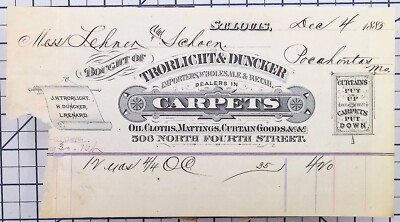 ST. LOUIS, Dec 4 1883
Mess Lehner and Schoen
Pocahontas Mo
BOUGHT OF
TRORLICHT & DUNCKER
IMPORTERS, WHOLESALE & RETAIL
DEALERS IN
CARPETS
OIL CLOTHS, MATTINGS, CURTAIN GOODS, &c &c
506 NORTH FOURTH STREET.
J.H. TRORLICHT.
H. DUNCKER,
L. RENARD
CURTAINS
PUT
UP
CARPETS
PUT
DOWN.
12 yds 4/4 O C 35 4 20